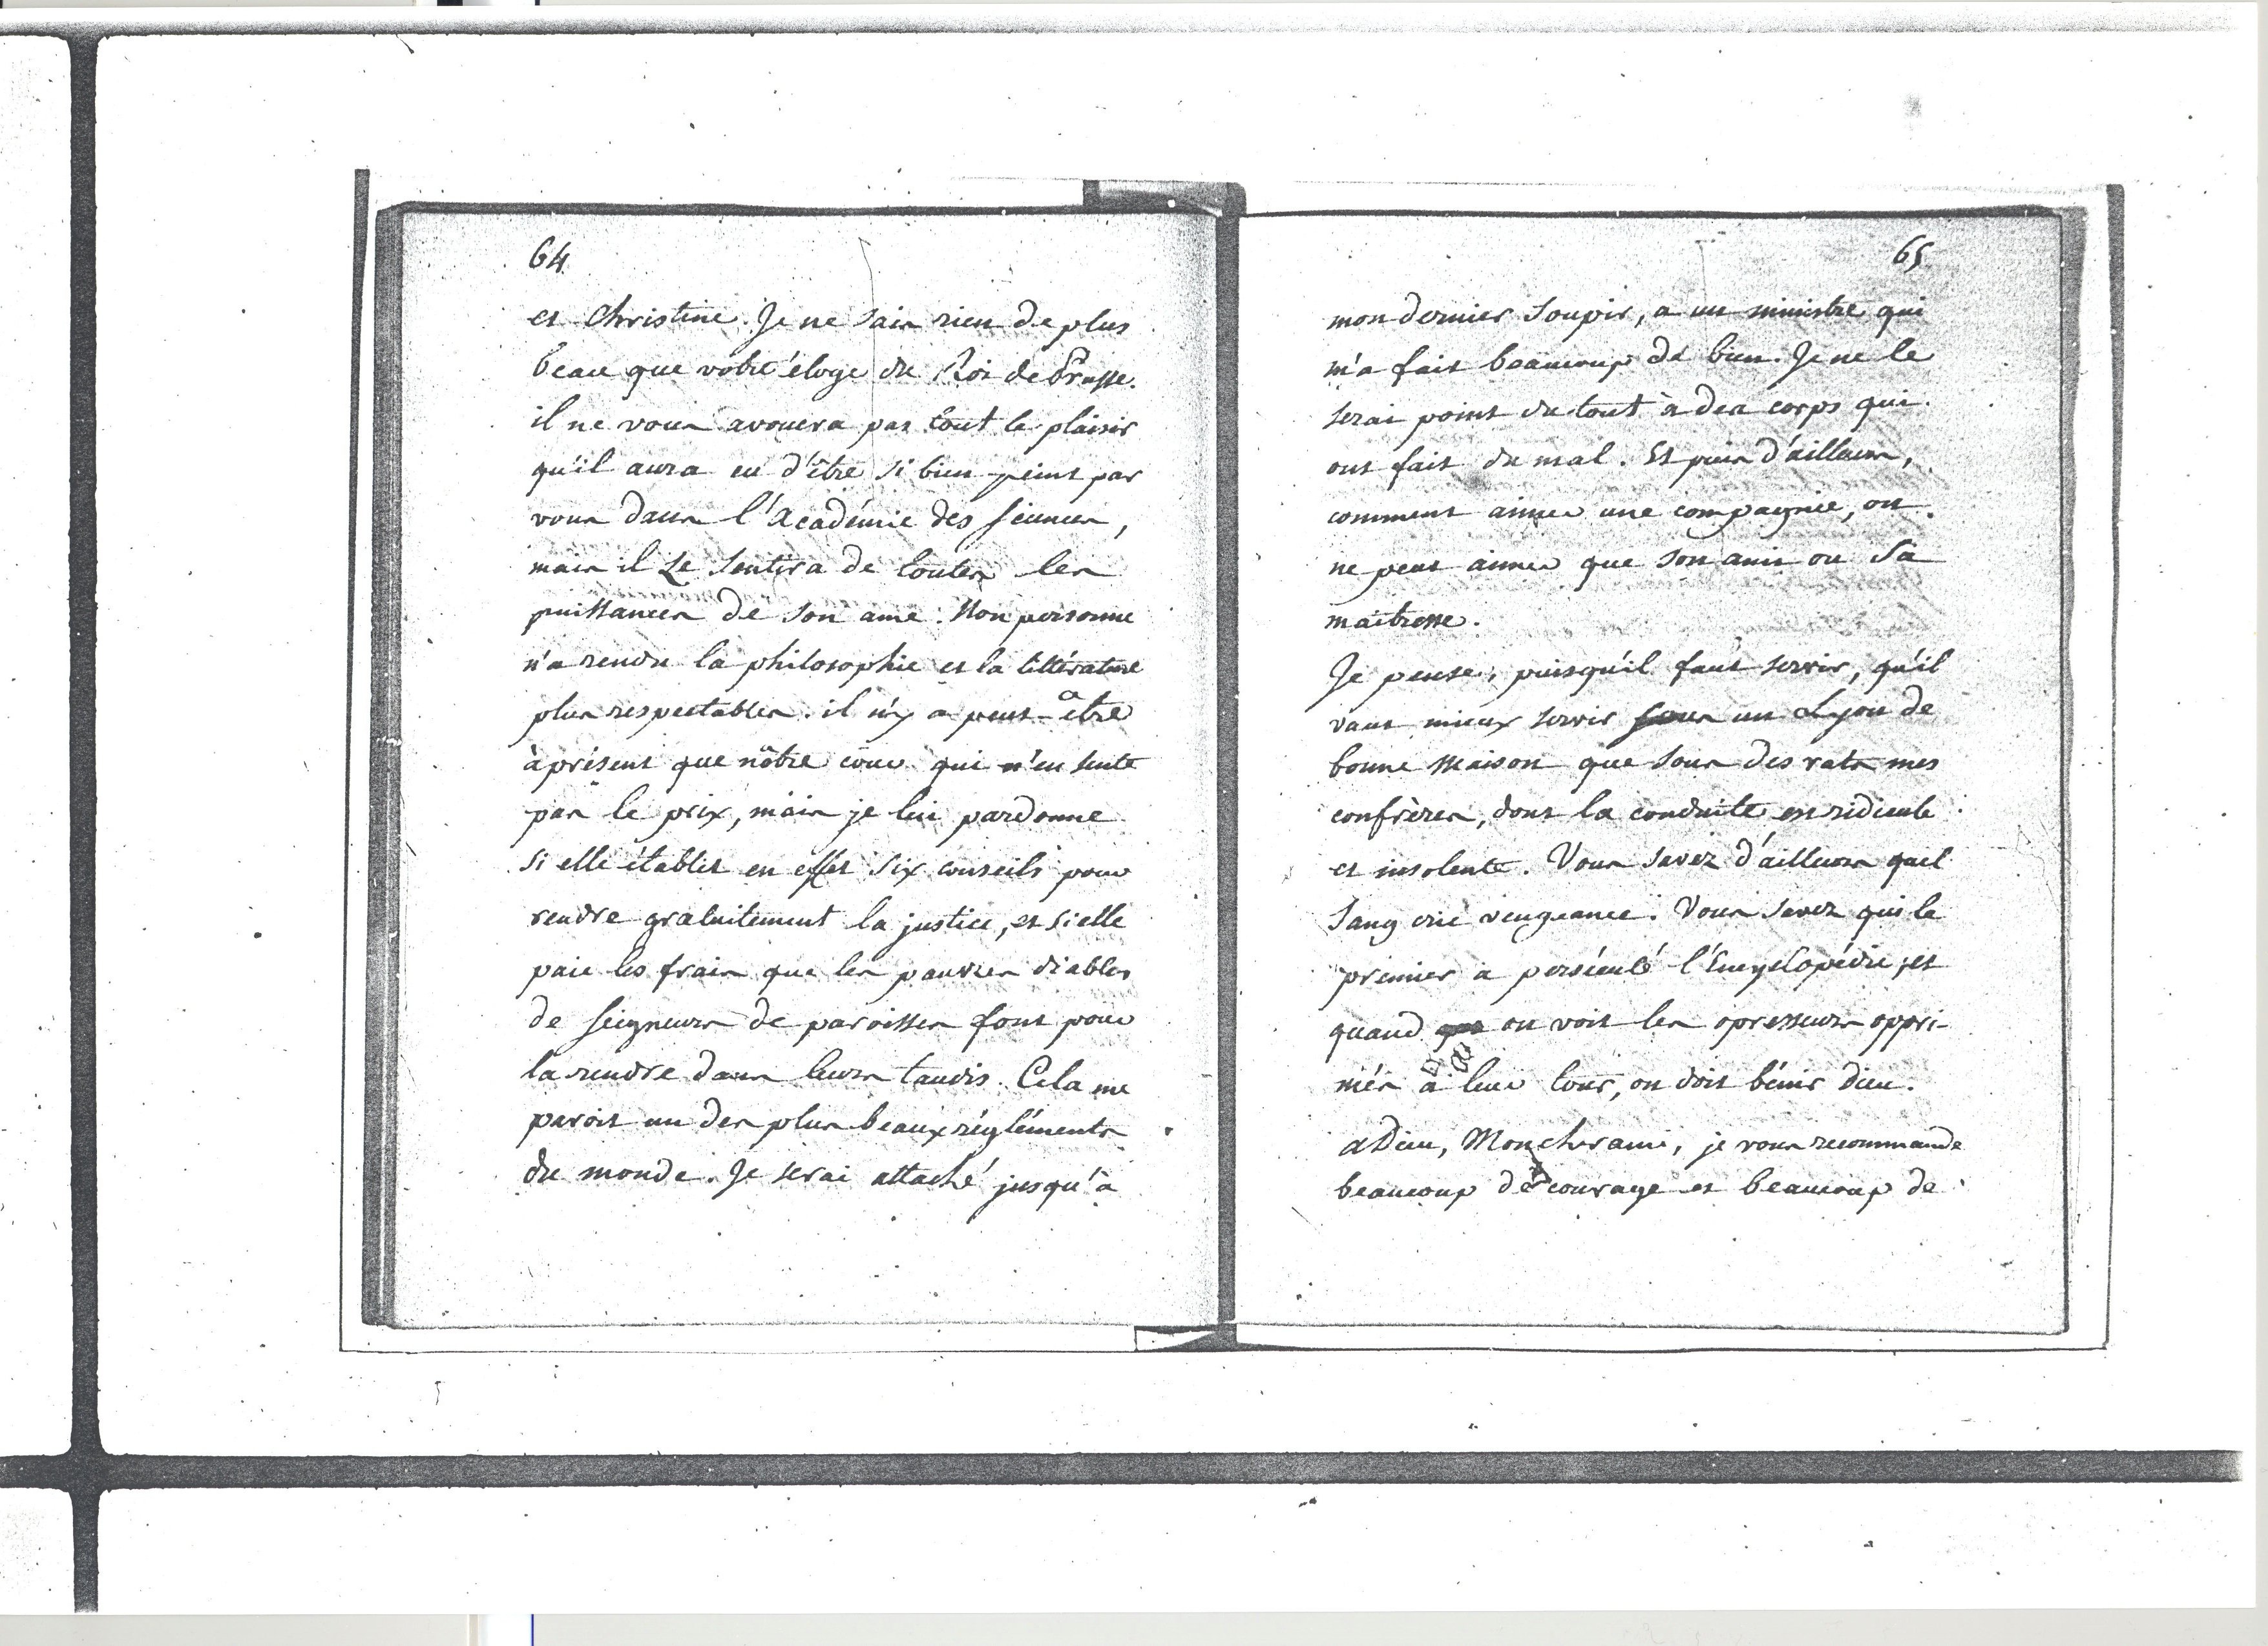 64
et Christine. Je ne sais rien de plus
beau que votre éloge du Roi de Prusse.
il ne vous avouera pas tout le plaisir
qu'il aura eu d'être si bien peint par
vous dans l'Academie des sciences,
mais il Le sentira de toutes les
puissances de son ame. Non personne
n'a rendu la philosophie et la littérature
plus respectables. il n'y a peut-être
àprésent que nôtre cour qui n'en sente
pas le prix, mais je lui pardonne
si elle établit en effet six conseils pour
rendre gratuitement la justice, et si elle
paie les frais que les pauvres diables
de seigneurs de paroisses font pour
la rendre dans leurs taudis. Cela me
paroit un des plus beaux réglements
du monde. Je serai attaché jusqu'à
65
mon dernier soupir, a un ministre qui
m'a fait beaucoup de bien. Je ne le
serai point du tout à des corps qui
ont fait du mal. Et puis d'ailleurs,
comment aimer une compagnie, on
ne peut aimer que son ami ou sa
maitresse.
Je pense, puisqu'il faut servir, qu'il
vaut mieux servir sous un Lyon de
bonne maison que sous des rats mes
confrères, dont la conduite est ridicule
et insolente. Vous savez d'ailleurs quel
sang crie vengeance. Vous savez qui le
premier a persécuté l'Encyclopédie, et
quand on voit les opresseurs oppri-
més à leur tour, on doit bénir Dieu.
aDieu, Mon cher ami, je vous recommande
beaucoup de courage et beaucoup de